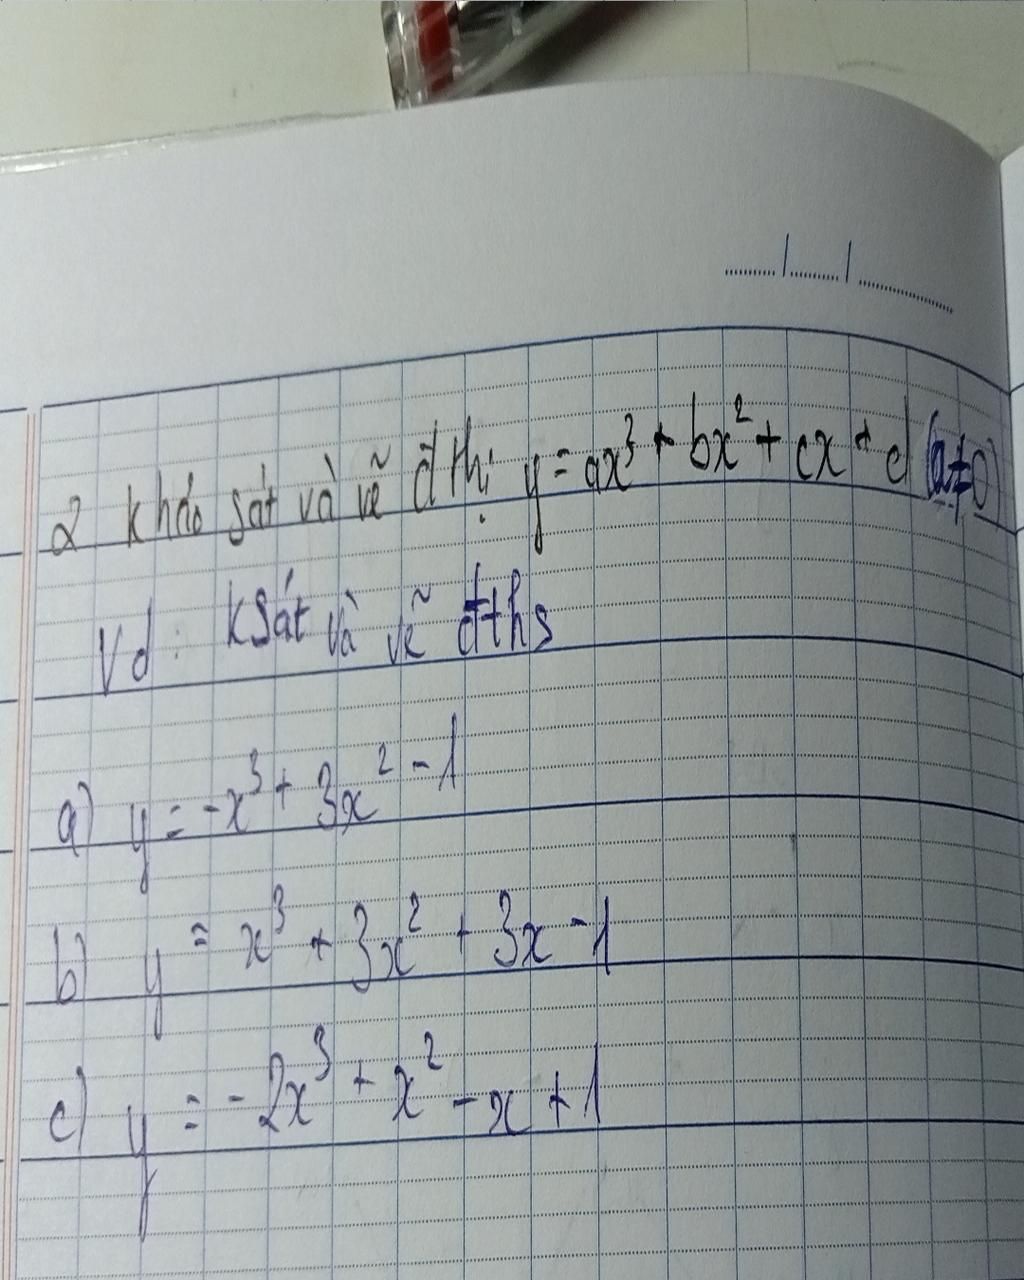 2 khảo sát và vẽ đ thị y = ax³ + bx² + cx + d (a≠0)
Vd: Ksát và vẽ đths
a) y = -x³ + 3x² - 1
b) y = x³ + 3x² + 3x - 1
c) y = -2x³ + x² - x + 1